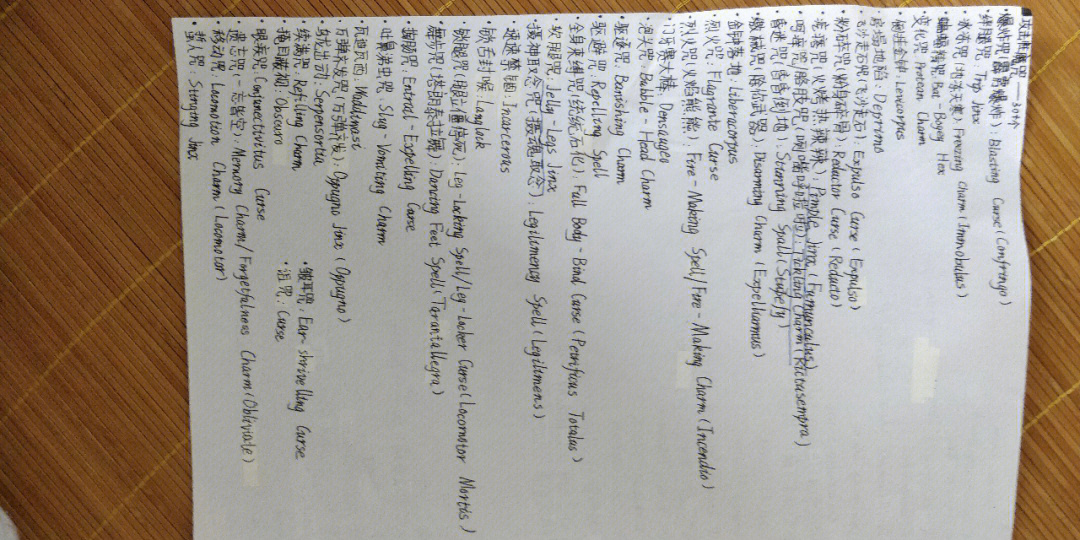 攻击性魔咒——304个
·爆炸咒(霹雳爆炸): Blasting Curse (Confringo)
·绊腿咒: Trip Jinx
·冰冻咒: Freezing Charm (Immobulus)
·蝙蝠精咒: Bat-Bogey Hex
·变化咒: Protean Charm
·倒挂金钟: Levicorpus
·房塌地陷: Deprimo
·飞沙走石咒(飞沙走石): Expulso Curse (Expulso)
·粉碎咒(粉身碎骨): Reductor Curse (Reducto)
·疙瘩咒(火烤热辣辣): Pimple Jinx (Furnunculus)
·呵痒咒/胳肢咒(咧嘴呼啦啦): Tickling Charm (Rictusempra)
·昏迷咒(昏昏倒地): Stunning Spall (Stupefy)
·缴械咒(除你武器): Disarming Charm (Expelliarmus)
·金钟落地: Liberacorpus
·烈火咒: Flagrante Curse
·烈火咒(火焰熊熊): Fire-Making Spell/Fire-Making Charm (Incendio)
·门牙赛大棒: Densaugeo
·泡头咒: Bubble-Head Charm
·驱逐咒: Banishing Charm
·驱腐咒: Repelling Spell
·全身束缚咒(统统石化): Full Body-Bind Curse (Petrificus Totalus)
·软腿咒: Jelly-Legs Jinx
·摄神取念咒(摄神取念): Legilimency Spell (Legilimens)
·速速禁锢: Incarcerous
·锁舌封喉: Langlock
·锁腿咒: Leg-Locking Spell/Leg-Locker Curse (Locomotor Mortis)
·舞步咒(塔朗泰拉舞): Dancing Feet Spell (Tarantallegra)
·掏肠咒: Entrail-Expelling Curse
·吐鼻涕虫咒: Slug-Vomiting Charm
·瓦迪瓦西: Waddiwasi
·万弹齐发咒(万弹齐发): Oppugno Jinx (Oppugno)
·乌龙出洞: Serpensortia
·续满咒: Refilling Charm
·掩目蔽视: Obscuro
·眼疾咒: Conjunctivitus Curse
·遗忘咒(一忘皆空): Memory Charm/Forgetfulness Charm (Obliviate)
·移动咒: Locomotion Charm (Locomotor)
·蜇人咒: Stinging Jinx
·皱耳咒: Ear-shrivelling Curse
·诅咒: Curse